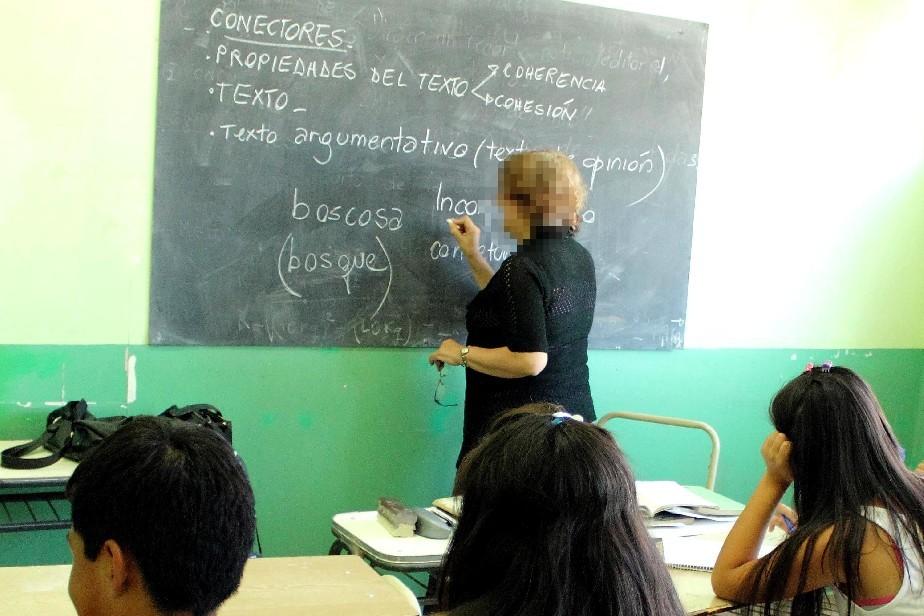 . CONECTORES.
. PROPIEDADES DEL TEXTO COHERENCIA
COHESIÓN
. TEXTO_
. Texto argumentativo (texto de opinión)
boscosa
(bosque)